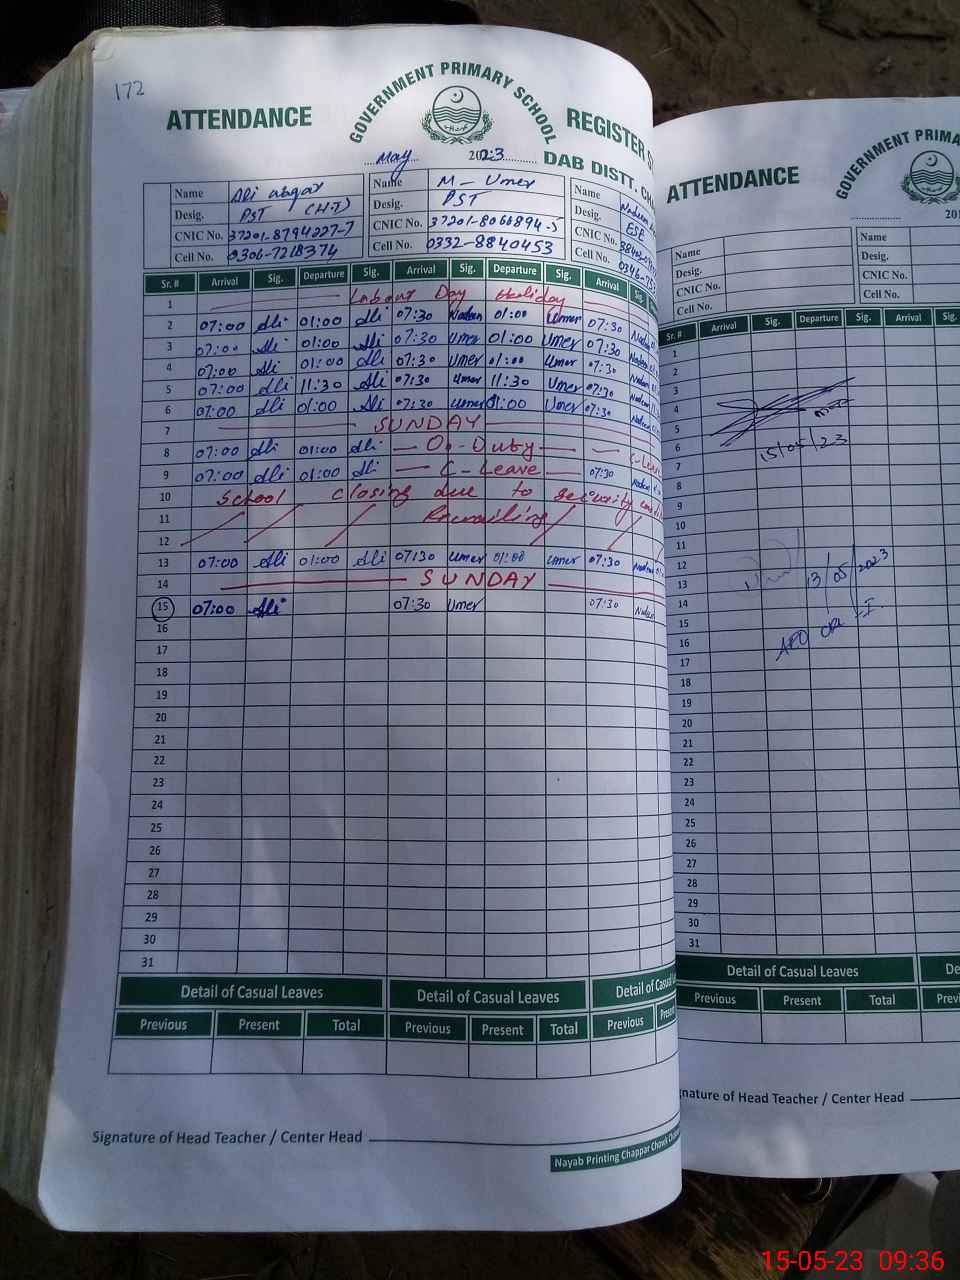 172
ATTENDANCE GOVERNMENT PRIMARY SCHOOL REGISTER
May 2023 DAB DISTT.
Name Ali asgar Name M-Umer Name
Desig. PST (H.T) Desig. PST Desig. ESE
CNIC No. 37201-8794227-7 CNIC No. 37201-8066894-5 CNIC No.
Cell No. 0306-7218374 Cell No. 0332-8840453 Cell No.
Sr. # Arrival Sig. Departure Sig. Arrival Sig. Departure Sig. Arrival Sig.
1 Labour Day Holiday
2 07:00 Ali 01:00 Ali 07:30 01:00 Umer 07:30
3 07:00 Ali 01:00 Ali 07:30 Umer 01:00 Umer 07:30
4 07:00 Ali 01:00 Ali 07:30 Umer 01:00 Umer 07:30
5 07:00 Ali 11:30 Ali 07:30 Umer 11:30 Umer 07:30
6 07:00 Ali 01:00 Ali 07:30 Umer 01:00 Umer 07:30
7 SUNDAY
8 07:00 Ali 01:00 Ali On-Duty C-Leave
9 07:00 Ali 01:00 Ali C-Leave 07:30
10 School closing due to security
11
12
13 07:00 Ali 01:00 Ali 07:30 Umer 01:00 Umer 07:30
14 SUNDAY
15 07:00 Ali 07:30 Umer 07:30
16
17
18
19
20
21
22
23
24
25
26
27
28
29
30
31
Detail of Casual Leaves Detail of Casual Leaves Detail of Casual
Previous Present Total Previous Present Total Previous Present
Signature of Head Teacher / Center Head
Nayab Printing Chappar Chowk
ATTENDANCE GOVERNMENT PRIMA
201
Name Name
Desig. Desig.
CNIC No. CNIC No.
Cell No. Cell No.
Sr. # Arrival Sig. Departure Sig. Arrival Sig.
1
2
3
4
5
6
7
8
9
10
11
12
13
14
15
16
17
18
19
20
21
22
23
24
25
26
27
28
29
30
31
15/05/23
13/05/2023
Detail of Casual Leaves De
Previous Present Total Previ
nature of Head Teacher / Center Head
15-05-23 09:36